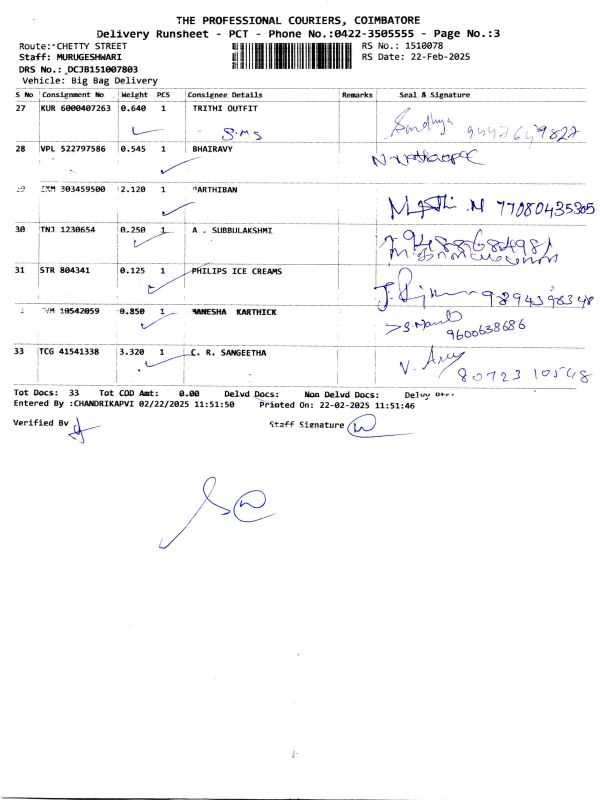 THE PROFESSIONAL COURIERS, COIMBATORE
Delivery Runsheet - PCT - Phone No.:0422-3505555 - Page No.:3
Route: CHETTY STREET RS No.: 1510078
Staff: MURUGESHWARI RS Date: 22-Feb-2025
DRS No.: DCJB151007803
Vehicle: Big Bag Delivery
S No Consignment No Weight PCS Consignee Details Remarks Seal & Signature
27 KUR 6000407263 0.640 1 TRITHI OUTFIT Sandhya
S.MS
28 VPL 522797586 0.545 1 BHAIRAVY
303459500 2.120 1 PARTHIBAN 77080435305
30 TNJ 1230654 0.250 1 A . SUBBULAKSHMI
31 STR 804341 0.125 1 PHILIPS ICE CREAMS 9894398348
10542059 0.850 1 MANESHA KARTHICK
9600638686
33 TCG 41541338 3.320 1 C. R. SANGEETHA
8072310548
Tot Docs: 33 Tot COD Amt: 0.00 Delvd Docs: Non Delvd Docs:
Entered By :CHANDRIKAPVI 02/22/2025 11:51:50 Printed On: 22-02-2025 11:51:46
Verified By Staff Signature